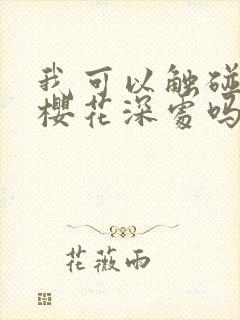 我可以触碰
樱花深处吗
花薇雨